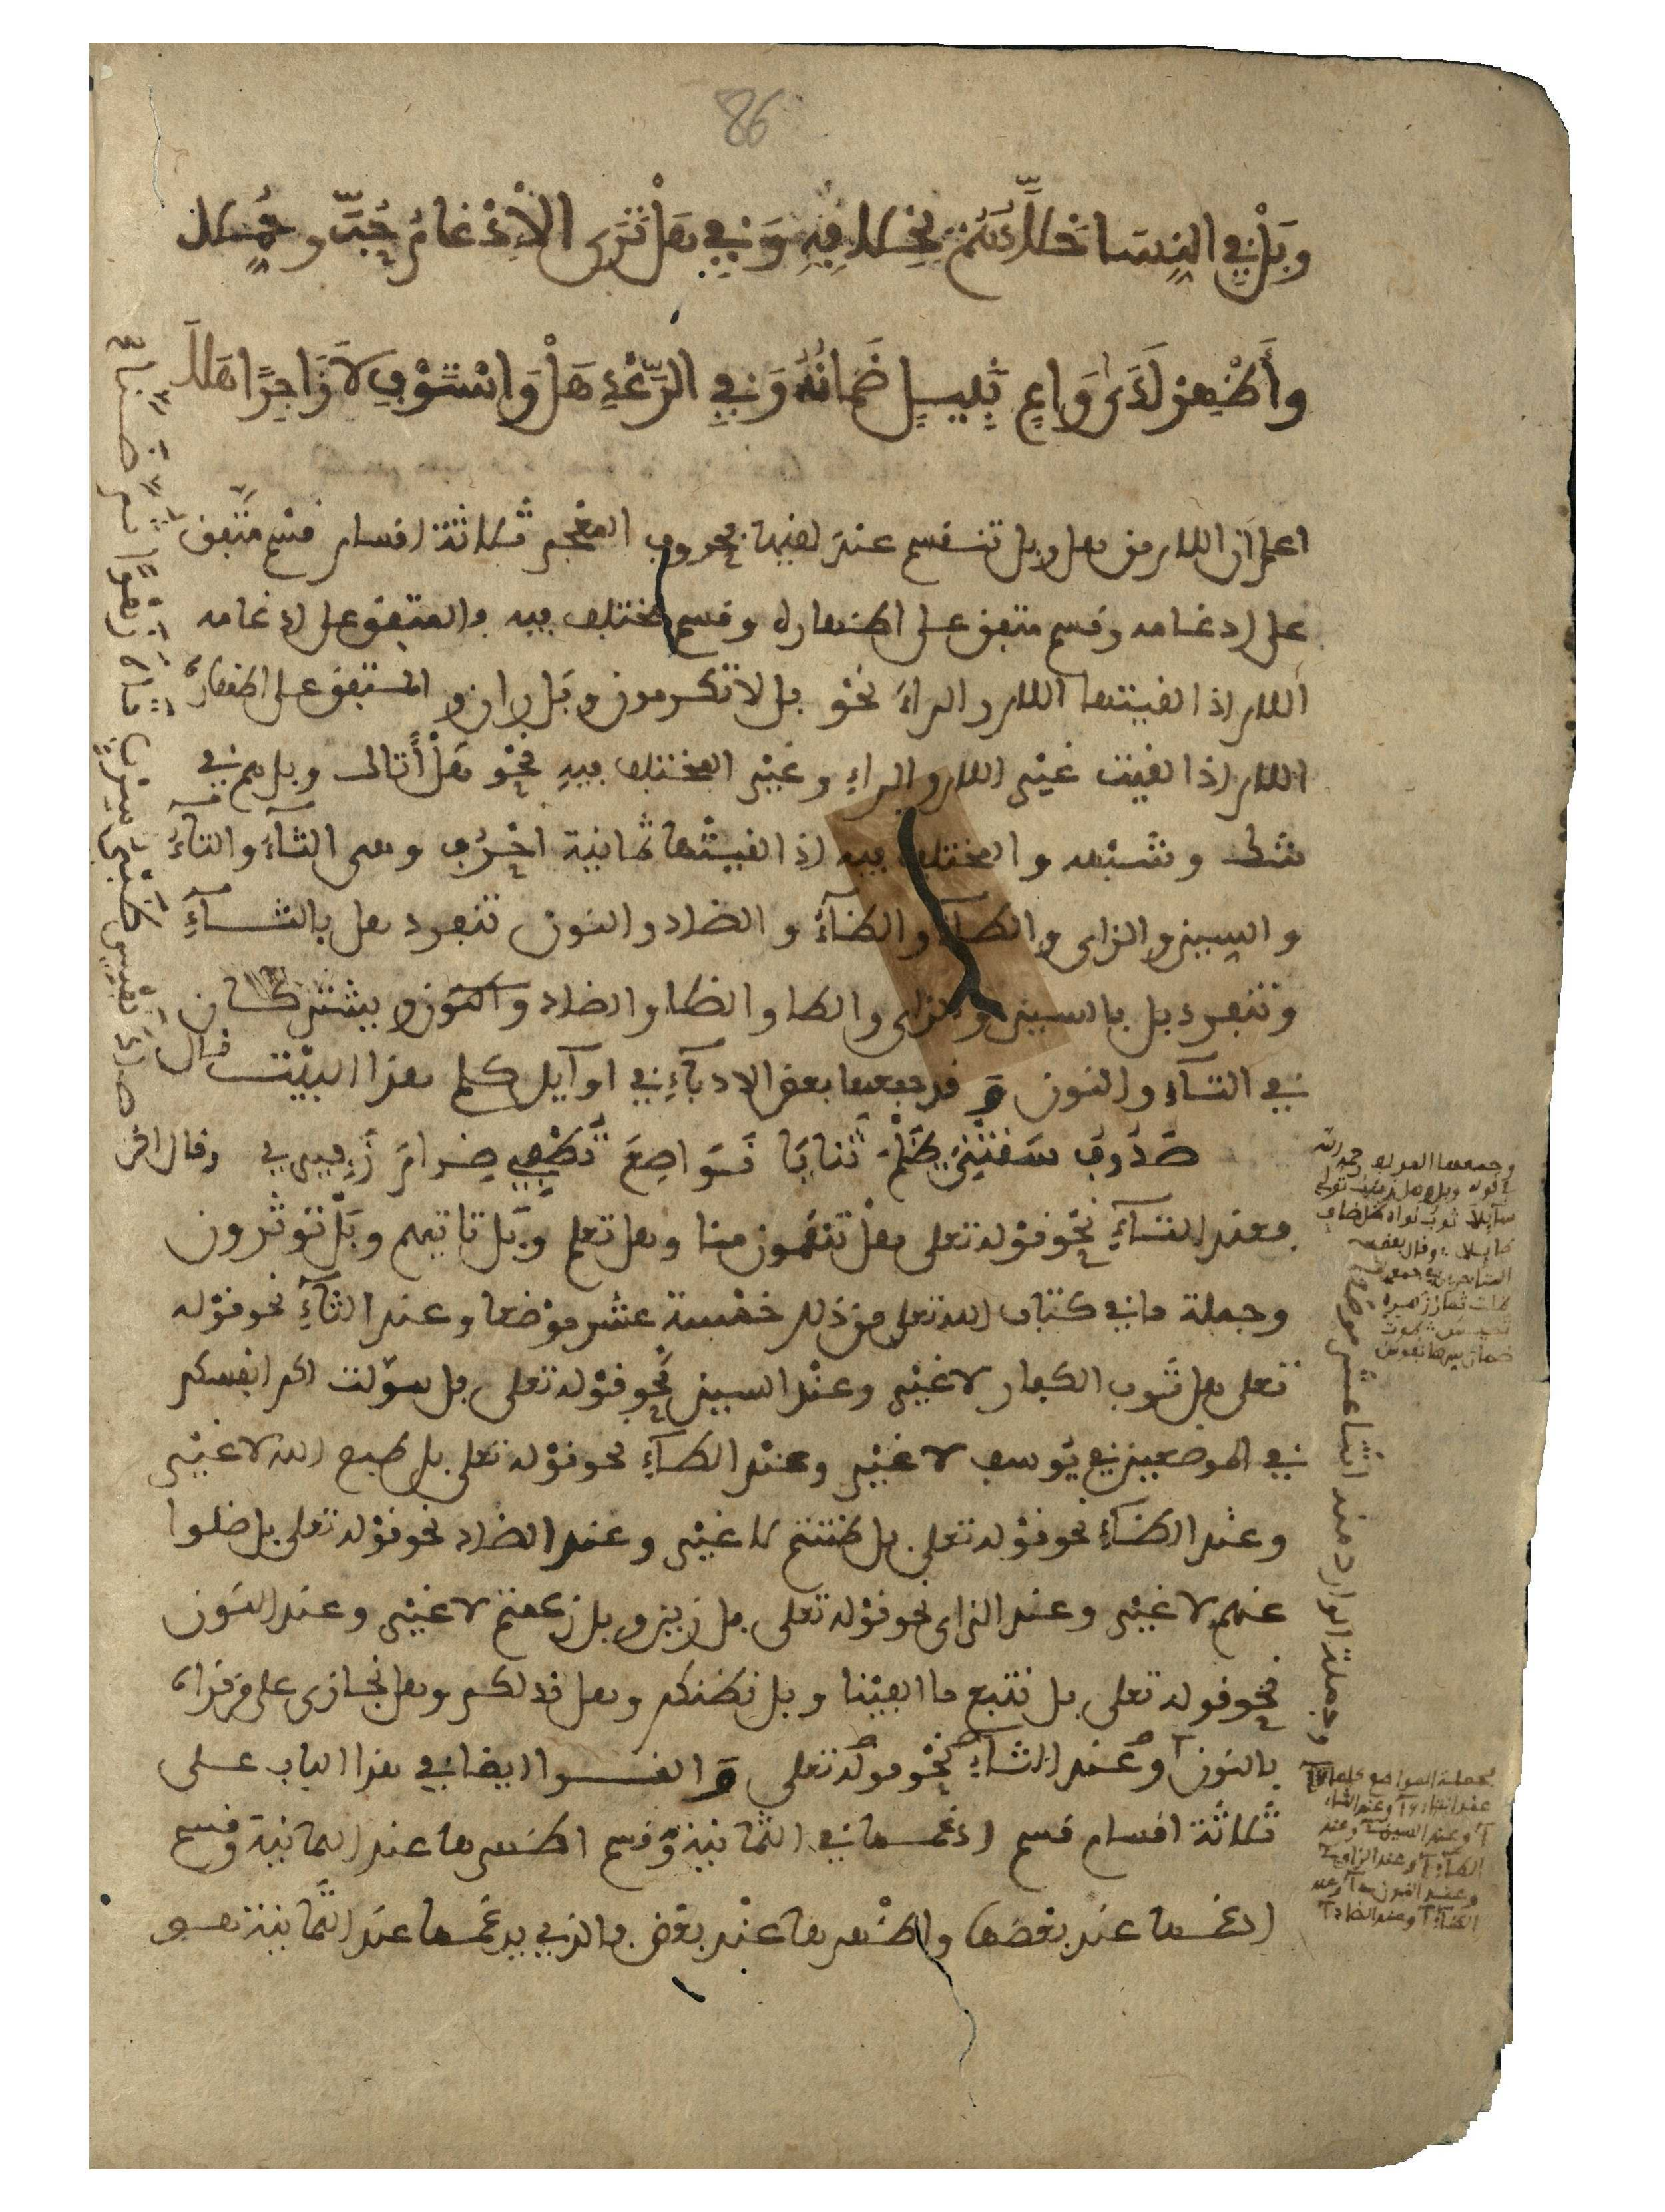 86
وَبَلْ فِي النِّسَا خَلَّادُهُمْ بِخِلَافِهِ وَفِي هَلْ تَرَى الْإِدْغَامُ حُبَّ وَحُمِّلَا
وَأَظْهِرْ لَدَى وَاعٍ نَبِيلٍ ضَمَانُهُ وَفِي الرَّعْدِ هَلْ وَاسْتَوْفِ لَا زَاجِرًا هَلَا
اعلم أن اللام من هل وبل تنقسم عند لقيها بحروف المعجم ثلاثة اقسام قسم متفق
على ادغامه وقسم متفق على اظهاره وقسم مختلف فيه فالمتفق على ادغامه
اللام اذا لقيتها اللام والراء نحو بل لا تكرمون وبل ران والمتفق على اظهاره
اللام اذا لقيت غير اللام والراء وغير المختلف فيه نحو هل أتاك وبل هم في
شك وشبهه والمختلف فيه اذا لقيتها ثمانية احرف وهي الثاء والتاء
والسين والزاى والطاء والظاء والضاد والنون تنفرد هل بالثاء
وتنفرد بل بالسين والزاى والطا والظا والضاد والنون ويشتركان
في التاء والنون وقد جمعها بعض الادباء في اوايل كلم هذا البيت فقال
صدوف سقتني ظلم ثنايا نواصع تطفي ضرام زفيري وقال اخر
فعند التاء نحو قوله تعلى هل تنقمون منا وهل تعلم وبل تاتيهم وبل توثرون
وجملة ما في كتاب الله تعلى من ذلك خمسة عشر موضعا وعند الثاء نحو قوله
تعلى هل ثوب الكفار لا غير وعند السين نحو قوله تعلى بل سولت لكم انفسكم
في الموضعين في يوسف لا غير وعند الطاء نحو قوله تعلى بل طبع الله لا غير
وعند الظاء نحو قوله تعلى بل ظننتم لا غير وعند الضاد نحو قوله تعلى بل ضلوا
عنهم لا غير وعند الزاى نحو قوله تعلى بل زين وبل زعمتم لا غير وعند النون
نحو قوله تعلى بل نتبع ما الفينا وبل نظنكم وهل ندلكم وهل نجازى على من قراه
بالنون وعند الثاء نحو قوله تعلى والقراء ايضا في هذا الباب على
ثلاثة اقسام قسم ادغمها في الثمانية وقسم اظهرها عند الثمانية وقسم
ادغمها عند بعضها واظهرها عند بعض فالذي يدغمها عند الثمانية هو
وجملة الوارد منه اثنا عشر موضعا
وقال بعض
فجملة المواضع كلها
وعند الثاء
وعند السين وعند
وعند الزاى
وعند النون وعند
الظاء وعند الضاد